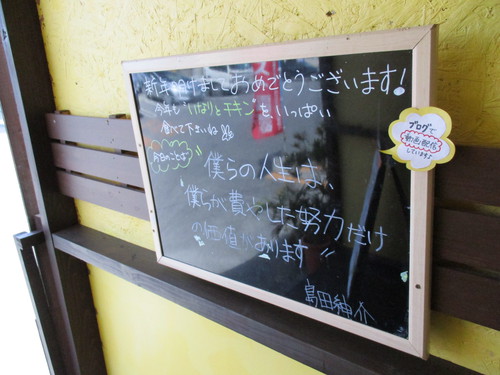 新年明けましておめでとうございます!
今年も"いなりとチキン"を、いっぱい
食べて下さいね
今日のことば
"僕らの人生は、
僕らが費やした努力だけ
の価値があります"
島田紳介
ブログで
動画配信
しています♪